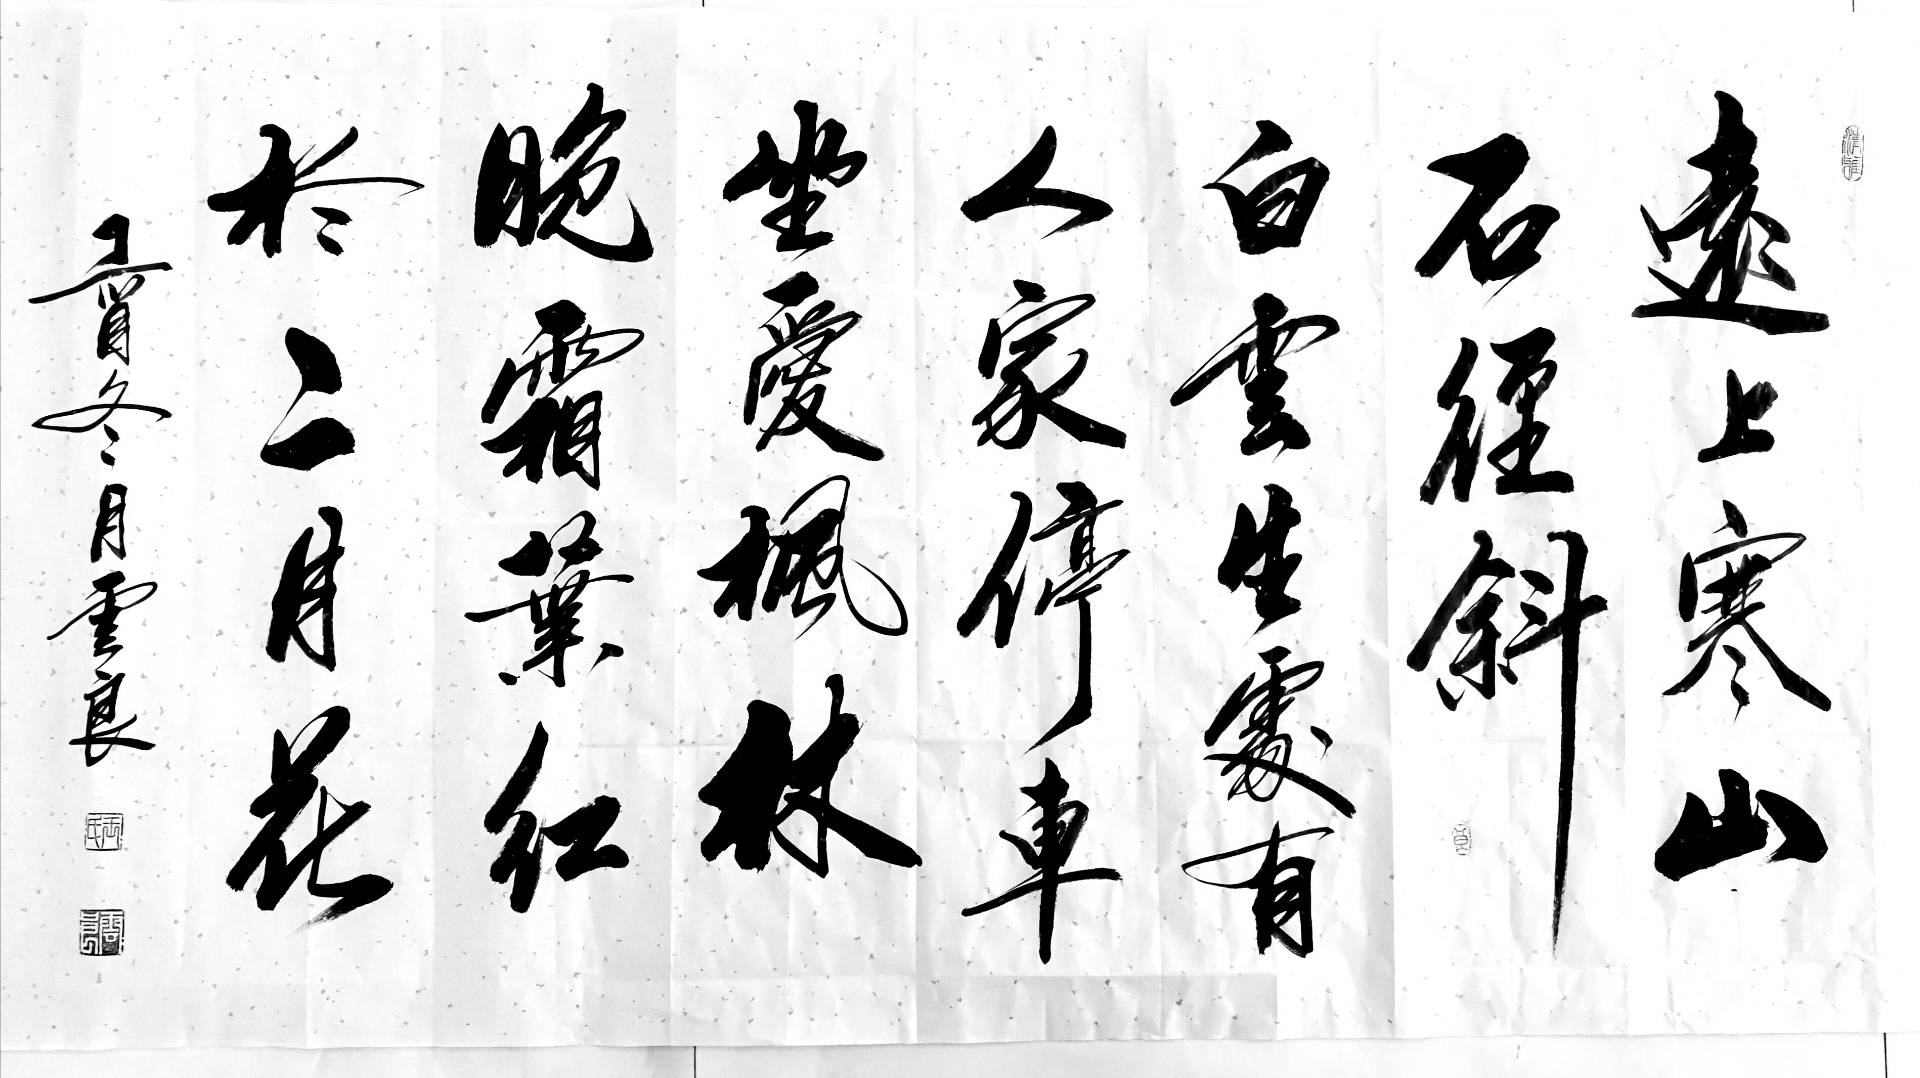 遠上寒山
石徑斜
白雲生處有
人家停車
坐愛楓林
晚霜葉紅
於二月花
冬月雲良